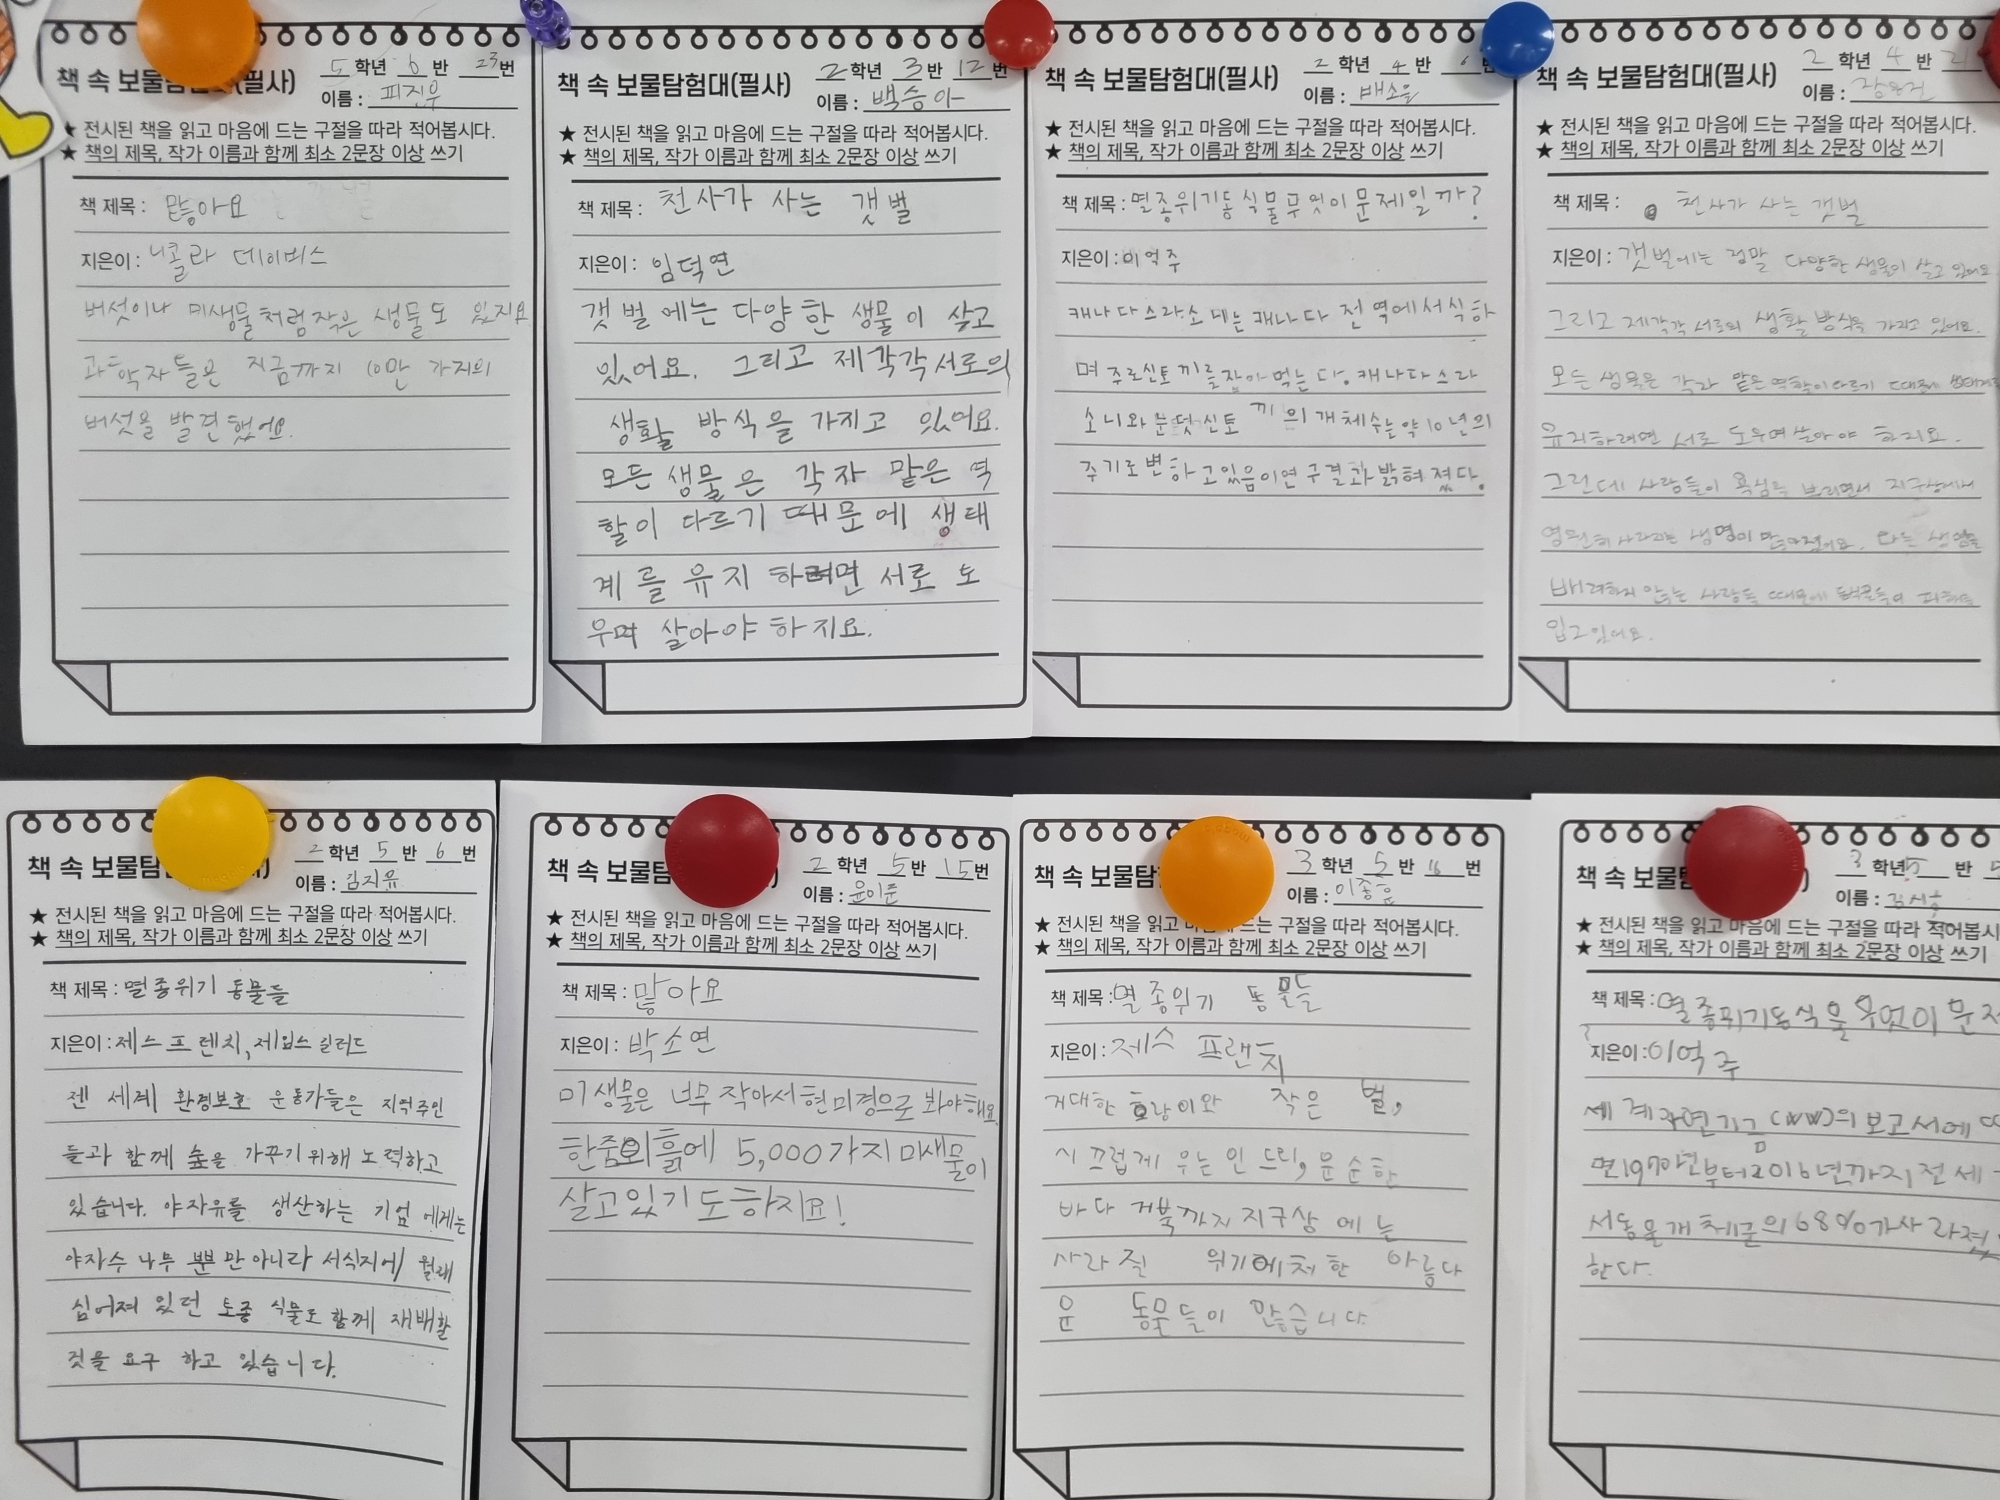 책 속 보물탐 (필사)
5 학년 6 반 23번
이름 : 피진우
★ 전시된 책을 읽고 마음에 드는 구절을 따라 적어봅시다.
★ 책의 제목, 작가 이름과 함께 최소 2문장 이상 쓰기
책 제목 : 많아요
지은이 : 니콜라 데이비스
버섯이나 미생물처럼 작은 생물도 있지요
과학자들은 지금까지 10만 가지의
버섯을 발견했어요.
책 속 보물탐험대(필사)
2 학년 3 반 12 번
이름 : 백승아
★ 전시된 책을 읽고 마음에 드는 구절을 따라 적어봅시다.
★ 책의 제목, 작가 이름과 함께 최소 2문장 이상 쓰기
책 제목 : 천사가 사는 갯벌
지은이 : 임덕연
갯벌에는 다양한 생물이 살고
있어요. 그리고 제각각 서로의
생활 방식을 가지고 있어요.
모든 생물은 각자 맡은 역
할이 다르기 때문에 생태
계를 유지 하려면 서로 도
우며 살아야 하지요.
책 속 보물탐험대(필사)
2 학년 4 반 6
이름 : 배소윤
★ 전시된 책을 읽고 마음에 드는 구절을 따라 적어봅시다.
★ 책의 제목, 작가 이름과 함께 최소 2문장 이상 쓰기
책 제목 : 멸종위기동식물무엇이문제일까?
지은이 : 이억주
캐나다스라소니는캐나다 전역에서식하
며 주로신토끼를잡아먹는다. 캐나다스라
소니와눈덧신토끼의개체수는약10년의
주기로변하고있음이연구결과밝혀졌다.
책 속 보물탐험대(필사)
2 학년 4 반 21
이름 :
★ 전시된 책을 읽고 마음에 드는 구절을 따라 적어봅시다.
★ 책의 제목, 작가 이름과 함께 최소 2문장 이상 쓰기
책 제목 : 천사가 사는 갯벌
지은이 : 갯벌에는 정말 다양한 생물이 살고 있어요
그리고 제각각 서로의 생활 방식을 가지고 있어요.
모든 생물은 각각 맡은 역할이 다르기 때문에 생태계를
유지하려면 서로 도우며 살아야 하지요.
그런데 사람들이 욕심을 부리면서 지구상에서
영원히 사라지는 생명이 많아졌어요. 다른 생명을
배려하지 않는 사람들 때문에 피해를
입고 있어요.
책 속 보물탐
2 학년 5 반 6 번
이름 : 김지유
★ 전시된 책을 읽고 마음에 드는 구절을 따라 적어봅시다.
★ 책의 제목, 작가 이름과 함께 최소 2문장 이상 쓰기
책 제목 : 멸종위기 동물들
지은이 : 제스 프렌치, 제임스 길러드
전 세계 환경보호 운동가들은 지역주인
들과 함께 숲을 가꾸기위해 노력하고
있습니다. 야자유를 생산하는 기업에게는
야자수 나무 뿐만 아니라 서식지에 원래
심어져 있던 토종 식물도 함께 재배할
것을 요구 하고 있습니다.
책 속 보물탐
2 학년 5 반 15번
이름 : 윤이준
★ 전시된 책을 읽고 마음에 드는 구절을 따라 적어봅시다.
★ 책의 제목, 작가 이름과 함께 최소 2문장 이상 쓰기
책 제목 : 많아요
지은이 : 박소연
미생물은 너무 작아서현미경으로 봐야해요
한줌의흙에 5,000가지 미새물이
살고있기도하지요!
책 속 보물탐
3 학년 5 반 16 번
이름 : 이종흔
★ 전시된 책을 읽고 드는 구절을 따라 적어봅시다.
★ 책의 제목, 작가 이름과 함께 최소 2문장 이상 쓰기
책 제목 : 멸종위기 동물들
지은이 : 제스 프랜치
거대한 호랑이와 작은 벌,
시끄럽게 우는 인드리, 온순한
바다 거북까지 지구상에는
사라질 위기에처한 아름다
운 동물들이 많습니다.
책 속 보물
3 학년 5 반
이름 :
★ 전시된 책을 읽고 마음에 드는 구절을 따라 적어봅시
★ 책의 제목, 작가 이름과 함께 최소 2문장 이상 쓰기
책 제목 : 멸종위기동식물 무엇이 문제
지은이 : 이억주
세계자연기금(WW)의 보고서에
면1970년부터2016년까지 전 세
서동물개체군의68%가사라졌
한다.